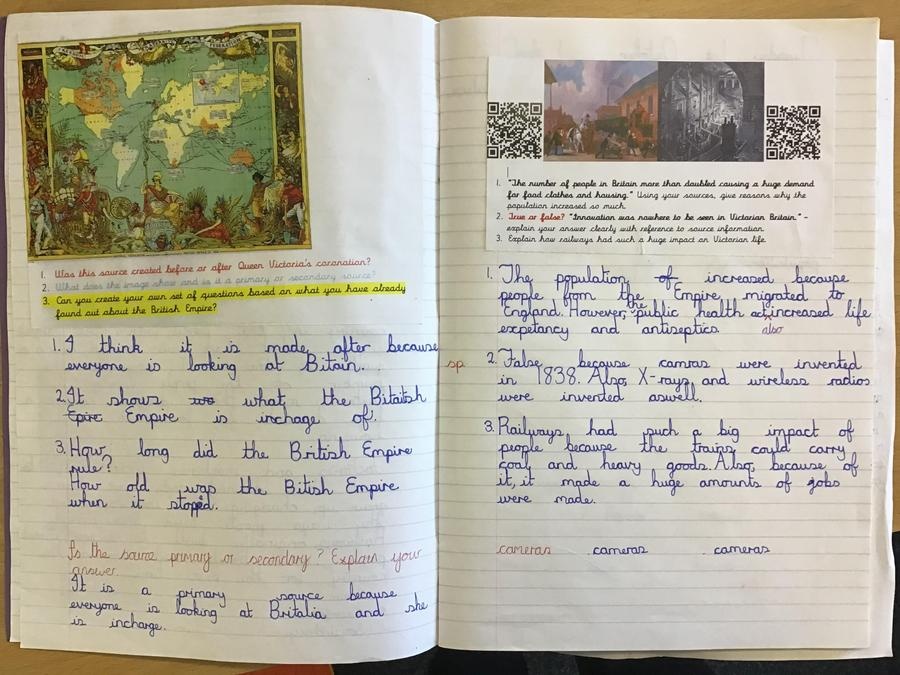 FEDERATION.
1. Was this source created before or after Queen Victoria's coronation?
2. What does the image show and is it a primary or secondary source?
3. Can you create your own set of questions based on what you have already
found out about the British Empire?
1. I think it is made after because
everyone is looking at Bitain.
2. It shows what the Bitaitsh
Epire Empire is inchage of.
3. How long did the British Empire
rule?
How old was the Bitish Empire
when it stopped.
Is the source primary or secondary? Explain your
answer.
It is a primary source because
everyone is looking at Britalia and she
is incharge.
1. "The number of people in Britain more than doubled causing a huge demand
for food clothes and housing." Using your sources, give reasons why the
population increased so much.
2. True or false? "Innovation was nowhere to be seen in Victorian Britain." -
explain your answer clearly with reference to source information.
3. Explain how railways had such a huge impact on Victorian life.
1. The population of increased because
people from the Empire migrated to
England. However, the public health act increased life
expetancy and antiseptics also
sp
2. False because camras were invented
in 1838. Also, X-rays, and wireless radios
were invented aswell.
3. Railways had such a big impact of
people because the trains could carry
coal and heavy goods. Also, because of
it, it made a huge amounts of jobs
were made.
cameras cameras cameras